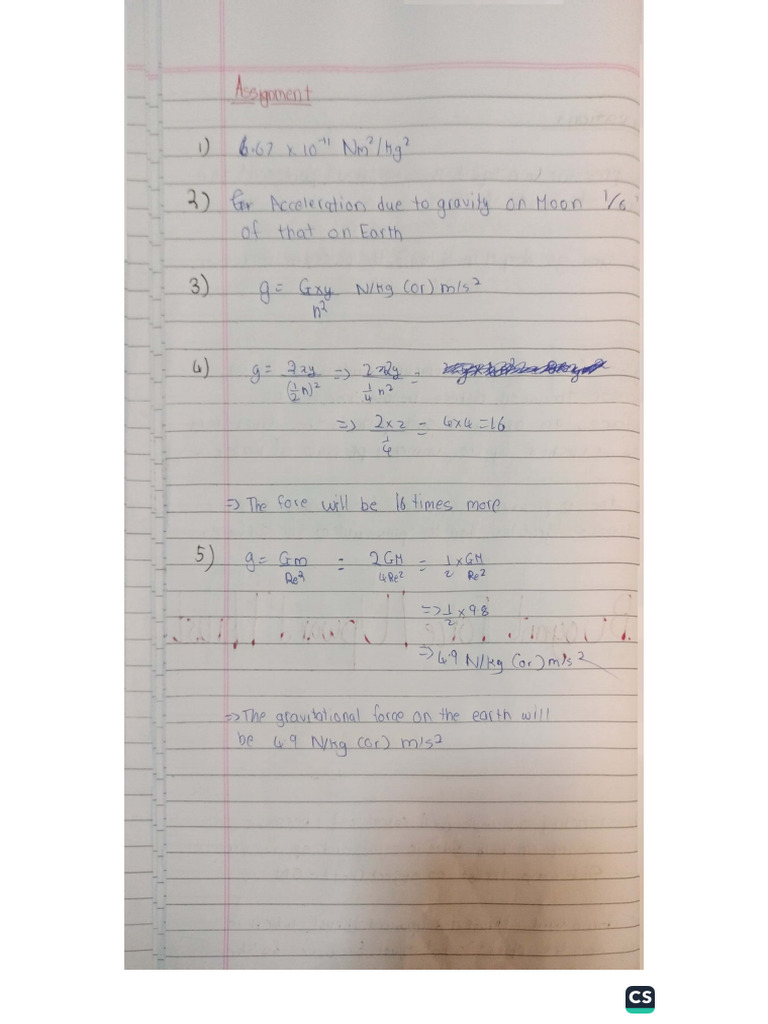 Assignment
1) 6.67 x 10⁻¹¹ Nm²/kg²
2) Acceleration due to gravity on Moon 1/6
of that on Earth
3) g = Gxy/n² N/kg (or) m/s²
4) g = 2xy/(1/2 n)² => 2x2y/1/4 n² =
=> 2x2/1/4 = 4x4 = 16
=> The fore will be 16 times more
5) g = Gm/Re² = 2GM/4Re² = 1/2 x GM/Re²
=> 1/2 x 9.8
=> 4.9 N/kg (or) m/s²
=> The gravitational force on the earth will
be 4.9 N/kg (or) m/s²
CS